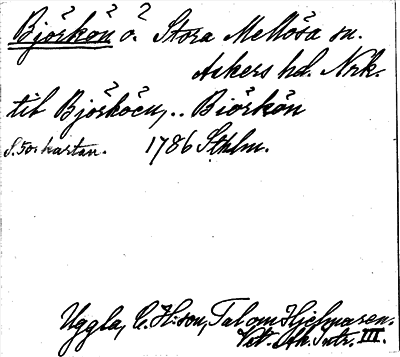 Björkön ö. Stora Mellösa sn.
Askers hd. Nrk.
til Björköen, .. Biörkön
S. 50r kartan. 1786 Sthlm.
Uggla, C. H:son, Tal om Hjelmaren.
Vet. Ak. Intr. III.